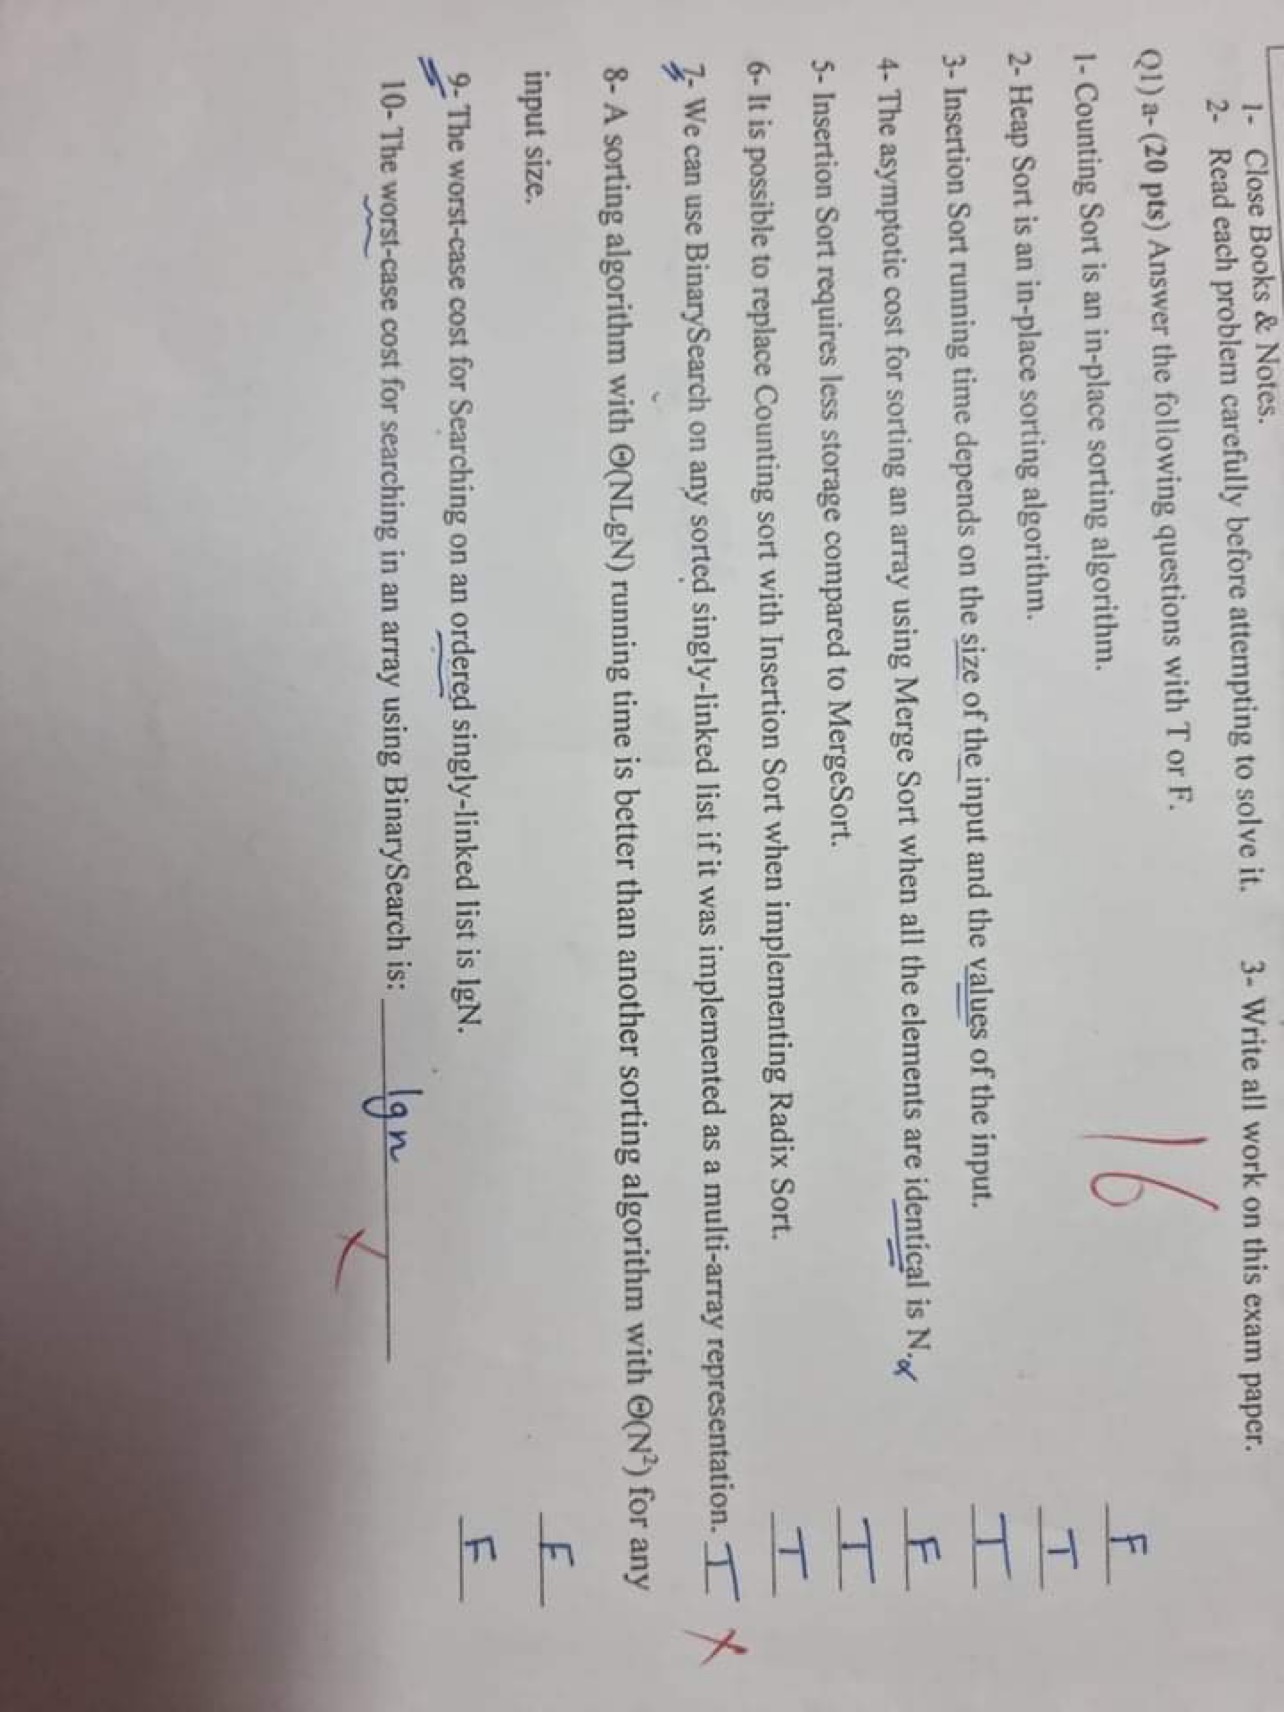 1- Close Books & Notes.
2- Read each problem carefully before attempting to solve it. 3- Write all work on this exam paper.
16
Q1) a- (20 pts) Answer the following questions with T or F.
1- Counting Sort is an in-place sorting algorithm. F
2- Heap Sort is an in-place sorting algorithm. T
3- Insertion Sort running time depends on the size of the input and the values of the input. T
4- The asymptotic cost for sorting an array using Merge Sort when all the elements are identical is N. F
5- Insertion Sort requires less storage compared to MergeSort. T
6- It is possible to replace Counting sort with Insertion Sort when implementing Radix Sort. T
7- We can use BinarySearch on any sorted singly-linked list if it was implemented as a multi-array representation. T X
8- A sorting algorithm with Θ(NLgN) running time is better than another sorting algorithm with Θ(N²) for any
input size. F
9- The worst-case cost for Searching on an ordered singly-linked list is lgN. F
10- The worst-case cost for searching in an array using BinarySearch is: lgn X